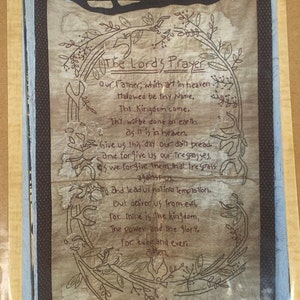 The Lord's Prayer
Our Father, which art in heaven
Hallowed be thy Name,
Thy Kingdom come,
Thy will be done on earth
as it is in heaven.
Give us this day our daily bread
and forgive us our trespasses
as we forgive them that trespass
against us.
and lead us not into temptation.
But deliver us from evil
for thine is the kingdom,
the power and the glory
for ever and ever